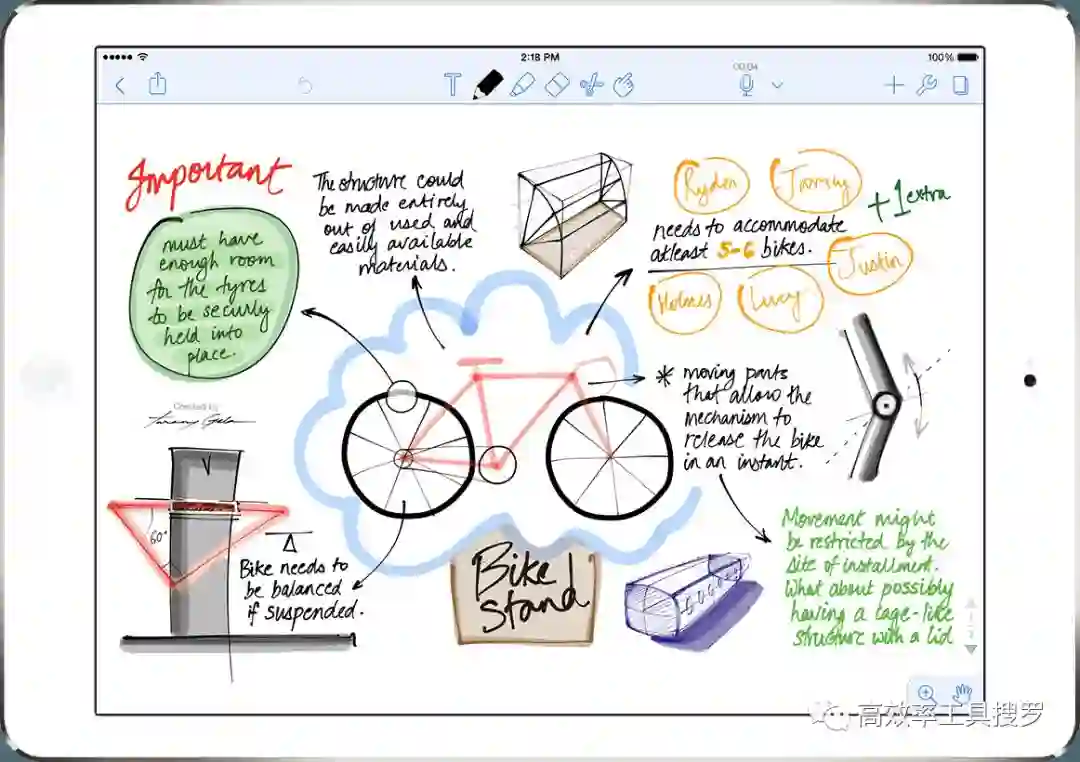 2:18 PM
100%
00:04
T
Important
must have
enough room
for the tyres
to be securly
held into
place.
The structure could
be made entirely
out of used and
easily available
materials.
Ryder
+1 extra
needs to accommodate
atleast 5-6 bikes.
Justin
Holmes
Lucy
* moving parts
that allow the
mechanism to
release the bike
in an instant.
Created by
60°
Bike needs to
be balanced
if suspended.
Bike
Stand
Movement might
be restricted by the
site of installment.
What about possibly
having a cage-like
structure with a lid
高效率工具搜罗